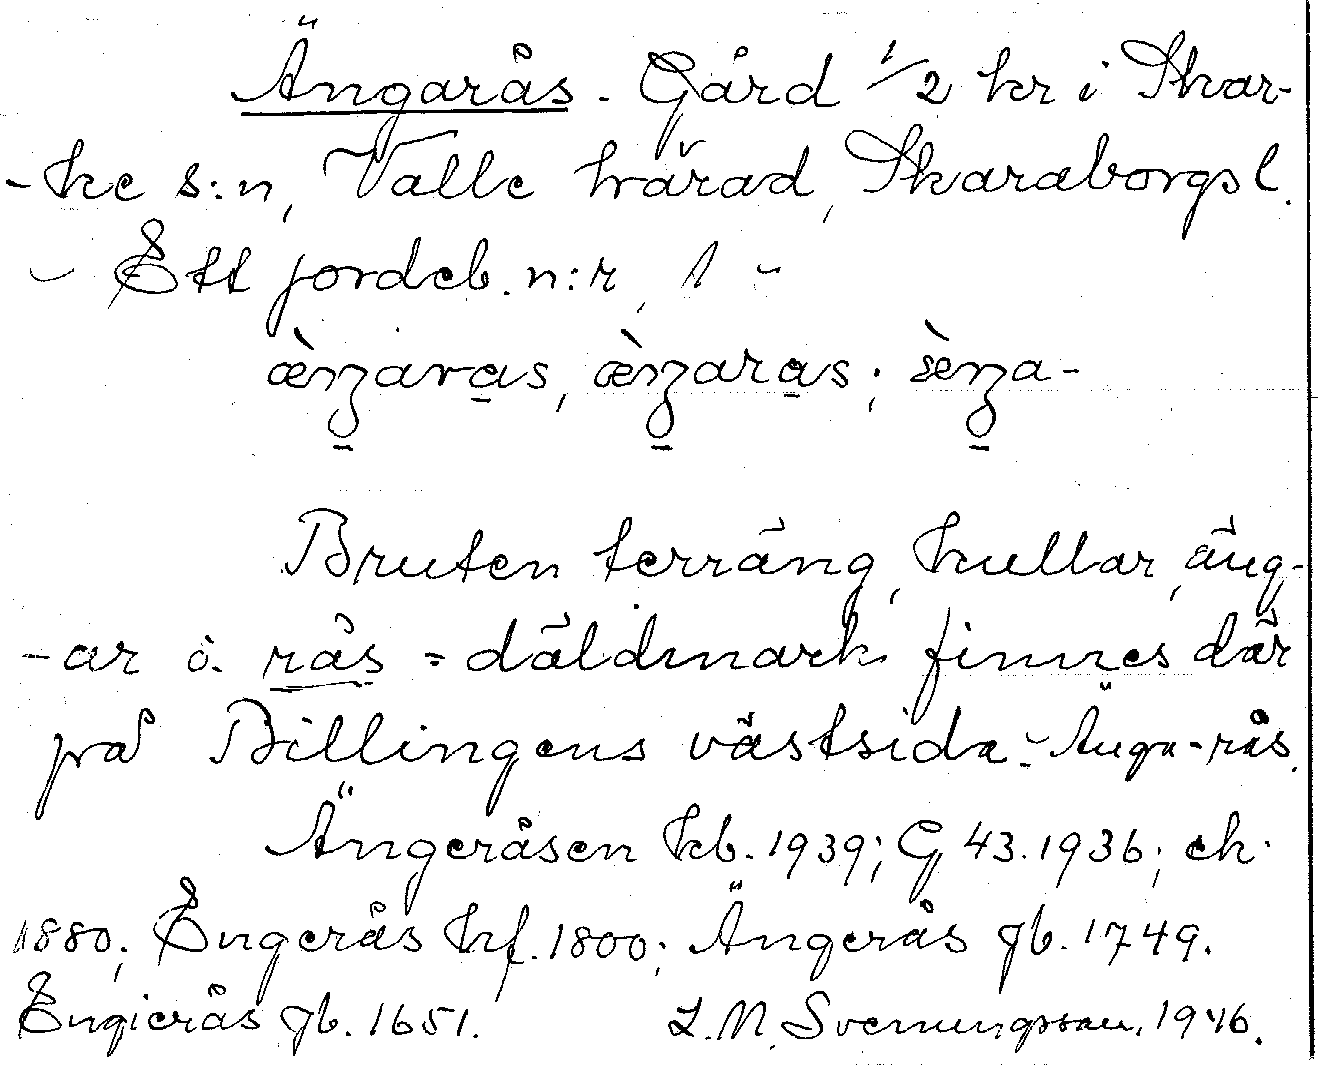 Ängarås. Gård 1/2 kr i Skar-
-ke s:n, Valle härad, Skaraborgs l.
- Ett jordeb. n:r, 1 -
Bruten terräng, kullar, äng-
-ar o. rås = däldmark finnes där
på Billingens västsida - Änga-rås.
Ängeråsen kb. 1939; G 43. 1936; ek.
1880; Engerås hf. 1800; Ängerås jb. 1749.
Engierås jb. 1651. L. M. Svenungsson, 1946.